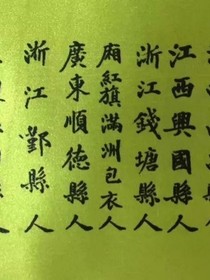 江西興國縣人
浙江錢塘縣人
廂紅旗滿洲包衣人
廣東順德縣人
浙江鄞縣人